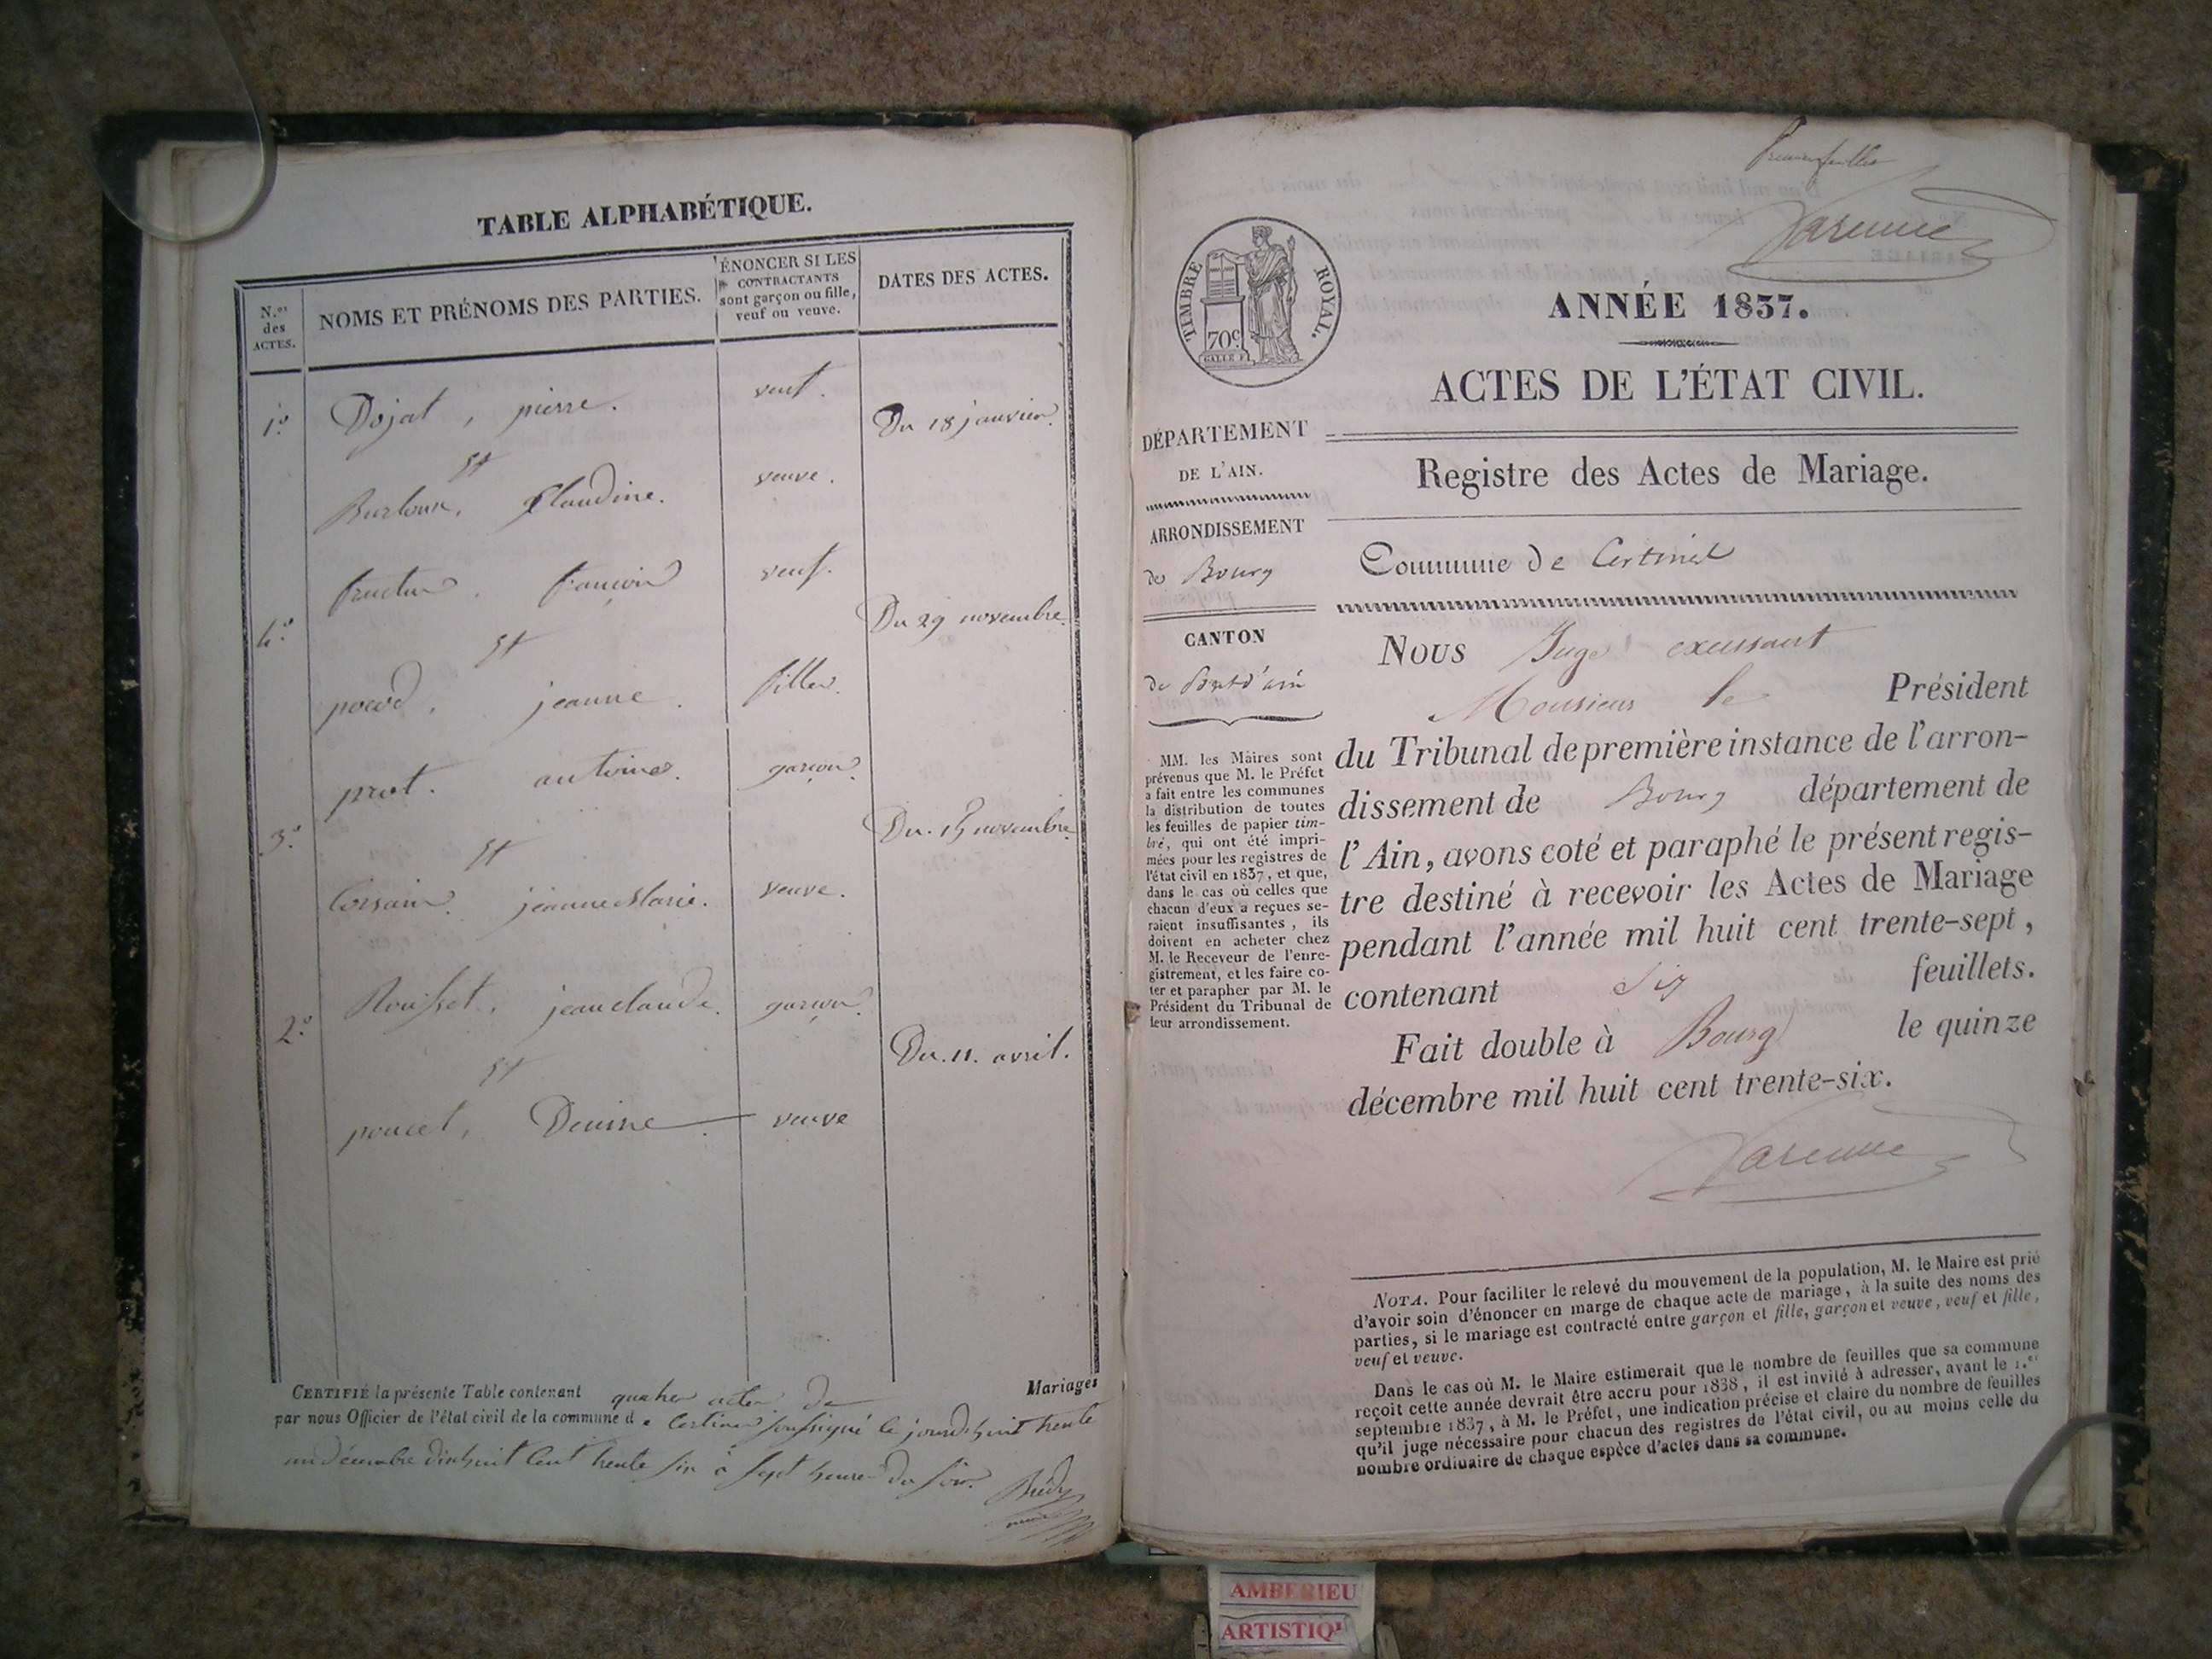 TABLE ALPHABÉTIQUE.
N.os
des
ACTES.
NOMS ET PRÉNOMS DES PARTIES.
ÉNONCER SI LES
CONTRACTANTS
sont garçon ou fille,
veuf ou veuve.
DATES DES ACTES.
1.o Dojat, pierre. veuf.
Du 18 janvier.
Et
Burloux, Claudine. veuve.
françois veuf.
4.o Du 29 novembre.
Et
jeanne. fille.
prot. antoine. garçon.
3.o Du 15 novembre.
Et
jeanne Marie. veuve.
Rousset, jean claude. garçon.
2.o
Du 11. avril.
Et
poncet, Denise veuve
CERTIFIÉ la présente Table contenant quatre actes de Mariages
par nous Officier de l'état civil de la commune de Certines soussigné le jourdhuit trente
un décembre dixhuit Cent trente six à sept heures du soir.
Varenne
TIMBRE ROYAL.
70c
ANNÉE 1837.
ACTES DE L'ÉTAT CIVIL.
DÉPARTEMENT
DE L'AIN.
Registre des Actes de Mariage.
ARRONDISSEMENT
de Bourg
Commune de Certines
CANTON
de Pont d'ain
MM. les Maires sont
prévenus que M. le Préfet
a fait entre les communes
la distribution de toutes
les feuilles de papier tim-
bré, qui ont été impri-
mées pour les registres de
l'état civil en 1837, et que,
dans le cas où celles que
chacun d'eux a reçues se-
raient insuffisantes, ils
doivent en acheter chez
M. le Receveur de l'enre-
gistrement, et les faire co-
ter et parapher par M. le
Président du Tribunal de
leur arrondissement.
Nous Juge exerçant
Monsieur le Président
du Tribunal de première instance de l'arron-
dissement de Bourg département de
l'Ain, avons coté et paraphé le présent regis-
tre destiné à recevoir les Actes de Mariage
pendant l'année mil huit cent trente-sept,
contenant Six feuillets.
Fait double à Bourg le quinze
décembre mil huit cent trente-six.
Varenne
NOTA. Pour faciliter le relevé du mouvement de la population, M. le Maire est prié
d'avoir soin d'énoncer en marge de chaque acte de mariage, à la suite des noms des
parties, si le mariage est contracté entre garçon et fille, garçon et veuve, veuf et fille,
veuf et veuve.
Dans le cas où M. le Maire estimerait que le nombre de feuilles que sa commune
reçoit cette année devrait être accru pour 1838, il est invité à adresser, avant le 1.er
septembre 1837, à M. le Préfet, une indication précise et claire du nombre de feuilles
qu'il juge nécessaire pour chacun des registres de l'état civil, ou au moins celle du
nombre ordinaire de chaque espèce d'actes dans sa commune.
AMBERIEU
ARTISTIQ